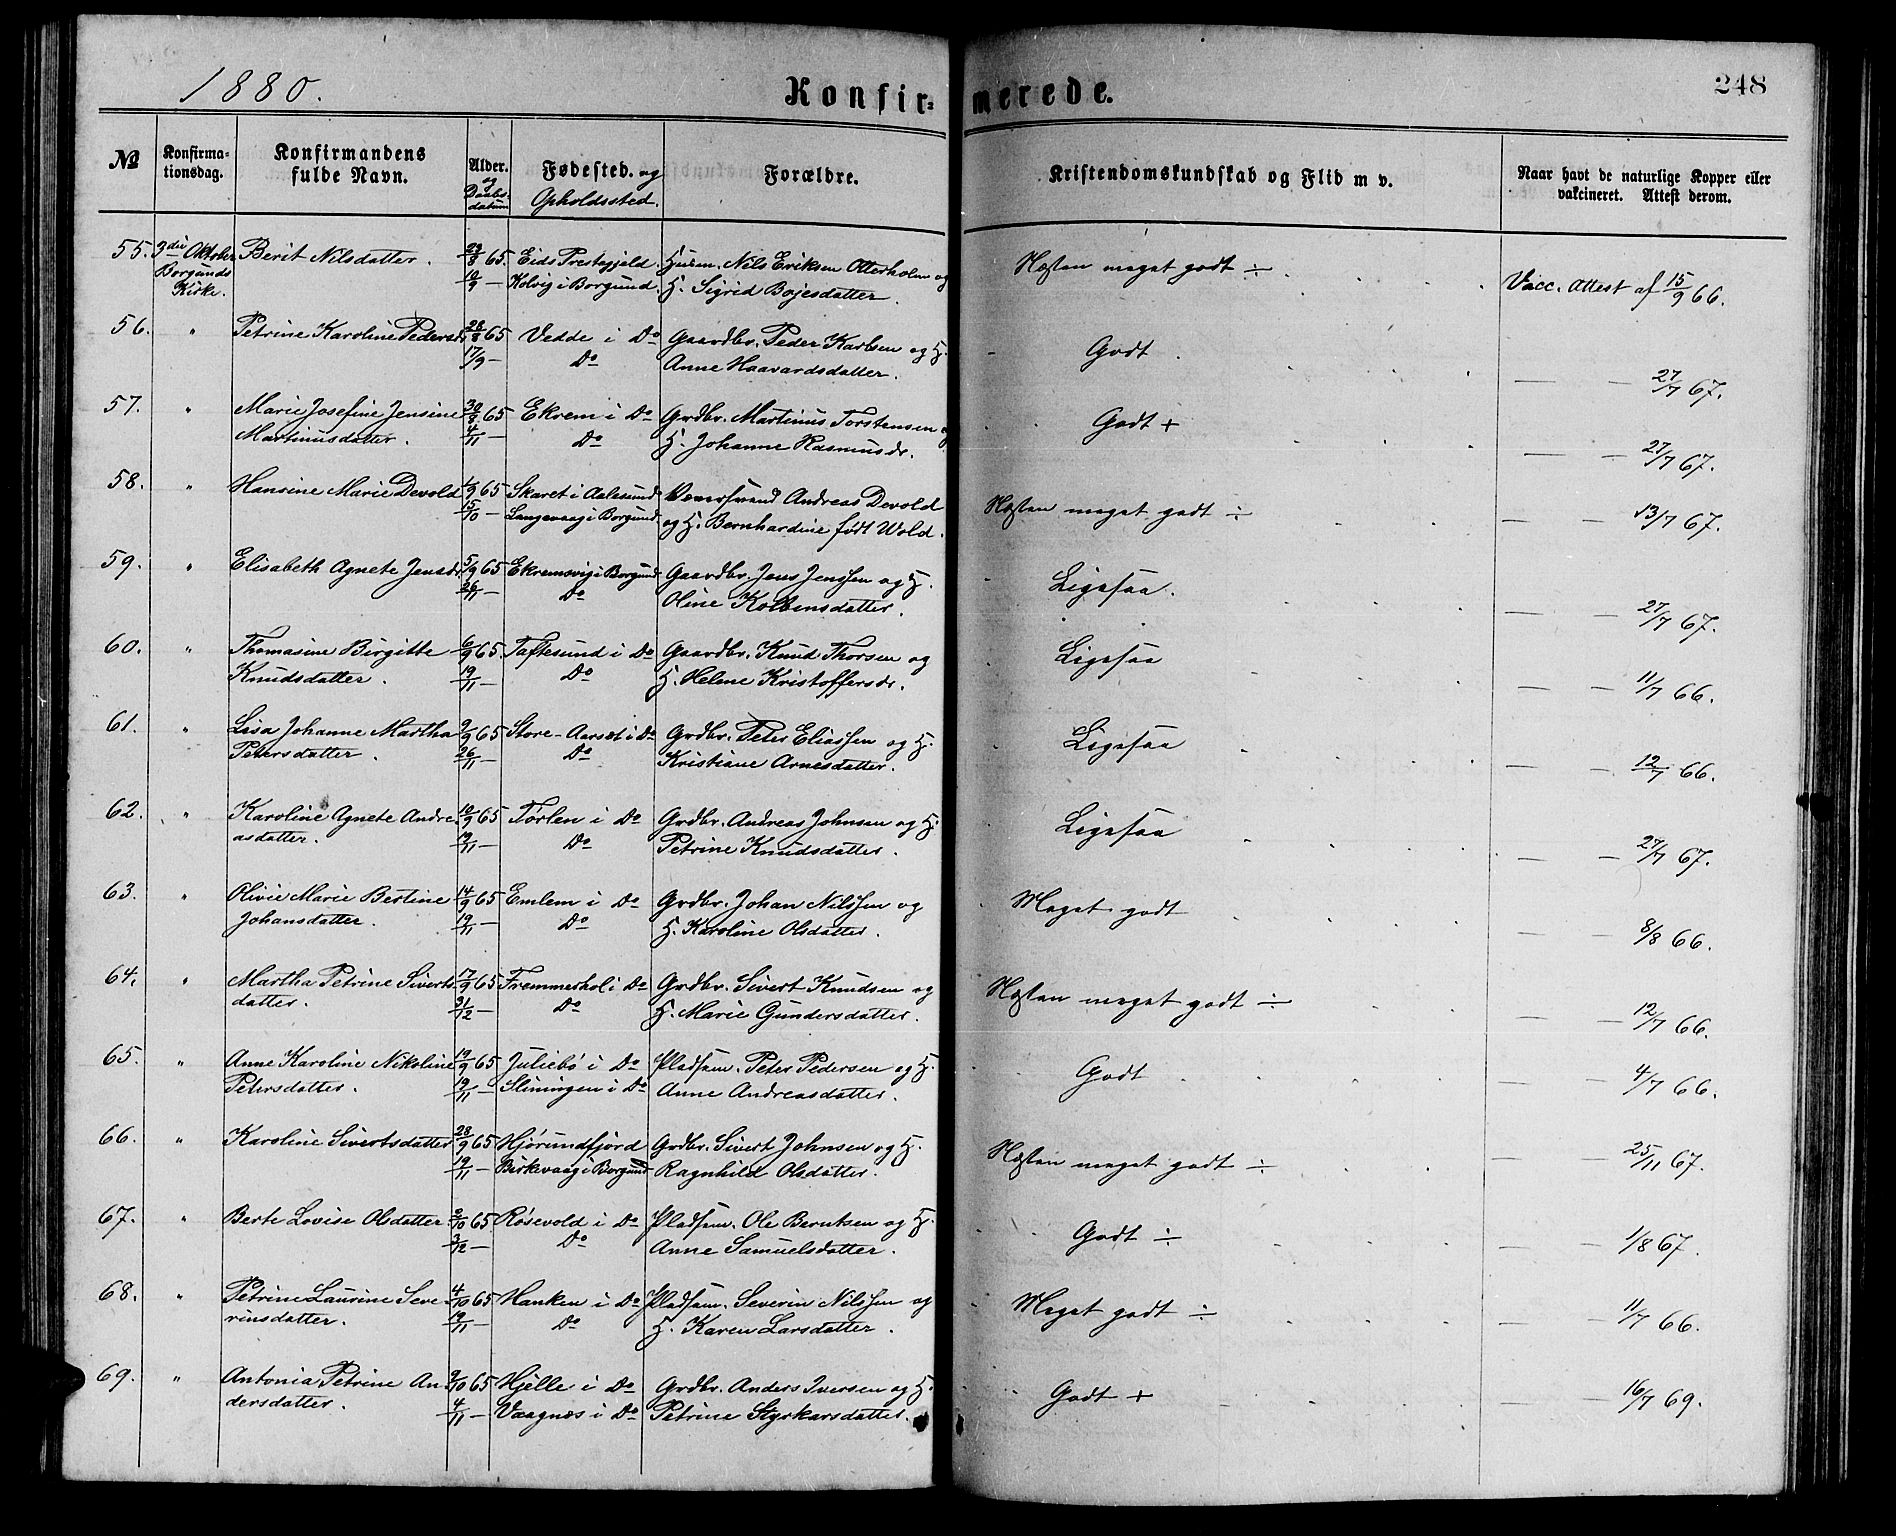 1880.
Konfir=
merede.
248
№
Konfirma-
tionsdag.
Konfirmandens
fulde Navn.
Alder.
og
Daabs-
datum
Fødested. og
Opholdssted.
Forældre.
Kristendomskundskab og Flid m v.
Naar havt de naturlige Kopper eller
vakcineret. Attest derom.
55. 3die Oktober Berit Nilsdatter. 23/8 65. Eids Prestegjeld. Husm. Nils Eriksen Otterholm og
Næsten meget godt ÷
Borgunds
10/9 — Kolvig i Borgund. H. Sigrid Bojesdatter.
Vacc. Attest af 15/9 66.
Kirke.
56. " Petrine Karoline Pedersdr. 28/8 65 Vedde i Do Gaardbr. Peder Karlsen og H.
Godt.
17/9 — Do Anne Haavardsdatter.
— — 27/7 67.
57. " Marie Josefine Jensine 30/8 65 Ekrem i Do Grdbr. Martinus Torstensen og
Godt +
Martinusdatter. 4/11 — Do H. Johanne Rasmusdr.
— — 27/7 67.
58. " Hansine Marie Devold 1/9 65 Skaret i Aalesund Andreas Devold
Næsten meget godt ÷
15/10 — Langevaag i Borgund og H. Bernhardine født Wold.
— — 13/7 67.
59. " Elisabeth Agnete Jensdr. 5/9 65 Ekremsvig i Borgund Gaardbr. Jens Jenssen og H.
Ligesaa.
26/11 — Do Oline Kolbensdatter.
— — 27/7 67.
60. " Thomasine Birgitte 6/9 65. Taftesund i Do Gaardbr. Knud Thorsen og
Ligesaa
Knudsdatter. 19/11 — Do H. Helene Kristoffersdr.
— — 11/7 66.
61. " Lisa Johanne Martha 9/9 65 Store-Aarset i Do Grdbr. Peter Eliassen og H.
Ligesaa
Petersdatter. 26/11 — Do Kristiane Arnesdatter.
— — 12/7 66.
62. " Karoline Agnete Andre- 10/9 65 Tørlen i Do Grdbr. Andreas Johnsen og H.
Ligesaa
asdatter. 19/11 — Do Petrine Knudsdatter.
— — 27/7 67.
63. " Olivie Marie Bertine 14/9 65 Emlem i Do Grdbr. Johan Nilssen og
Meget godt
Johansdatter. 19/11 — Do H. Karoline Olsdatter.
— — 8/8 66.
64. " Martha Petrine Siverts- 17/9 65 Fremmerhol i Do Grdbr. Sivert Knudsen og
Næsten meget godt ÷
datter. 31/12 — Do H. Marie Gundersdatter.
— — 12/7 66.
65. " Anne Karoline Nikoline 19/9 65 Juliebø i Do Pladsm. Peter Pedersen og H.
Godt
Petersdatter. 19/11 — Sliningen i Do Anne Andreasdatter.
— — 4/7 66.
66. " Karoline Sivertsdatter 28/9 65 Hjørundfjord Grdbr. Sivert Johnsen og H.
Næsten meget godt ÷
19/11 — Birkevaag i Borgund Ragnhild Olsdatter.
— — 25/11 67.
67. " Berte Lovise Olsdatter 2/10 65 Røsevold i Do Pladsm. Ole Berntsen og H.
Godt ÷
3/12 — Do Anne Samuelsdatter.
— — 1/8 67.
68. " Petrine Laurine Seve- 4/10 65 Hanken i Do Pladsm. Severin Nilssen og
Meget godt ÷
rinsdatter. 19/11 — Do H. Karen Larsdatter.
— — 11/7 66.
69. " Antonia Petrine An- 9/10 65 Hjelle i Do Grdbr. Anders Iversen og H.
Godt +
dersdatter. 4/11 — Vaagnes i Do Petrine Styrkarsdatter.
— — 16/7 69.